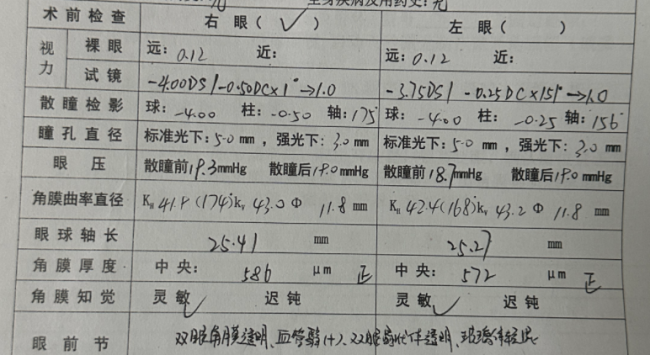 全身疾病及用药史:无
术前检查 右 眼( ✓ ) 左 眼( )
视力 裸眼 远: 0.12 近: 远: 0.12 近:
试镜 -4.00DS/-0.50DC×1°→1.0 -3.75DS/-0.25DC×151°→1.0
散瞳检影 球: -4.00 柱: -0.50 轴: 175 球: -4.00 柱: -0.25 轴: 156
瞳孔直径 标准光下: 5.0 mm , 强光下: 3.0 mm 标准光下: 5.0 mm , 强光下: 3.0 mm
眼 压 散瞳前 19.3 mmHg 散瞳后 19.0 mmHg 散瞳前 18.7 mmHg 散瞳后 19.0 mmHg
角膜曲率直径 KH 41.9 (174) KV 43.0 Φ 11.8 mm KH 42.4 (168) KV 43.2 Φ 11.8 mm
眼球轴长 25.41 mm 25.27 mm
角膜厚度 中央: 586 μm 正 中央: 572 μm 正
角膜知觉 灵敏 ✓ 迟钝 灵敏 ✓ 迟钝
眼前节 双眼角膜透明、血管翳(+)、双眼晶状体透明、玻璃体